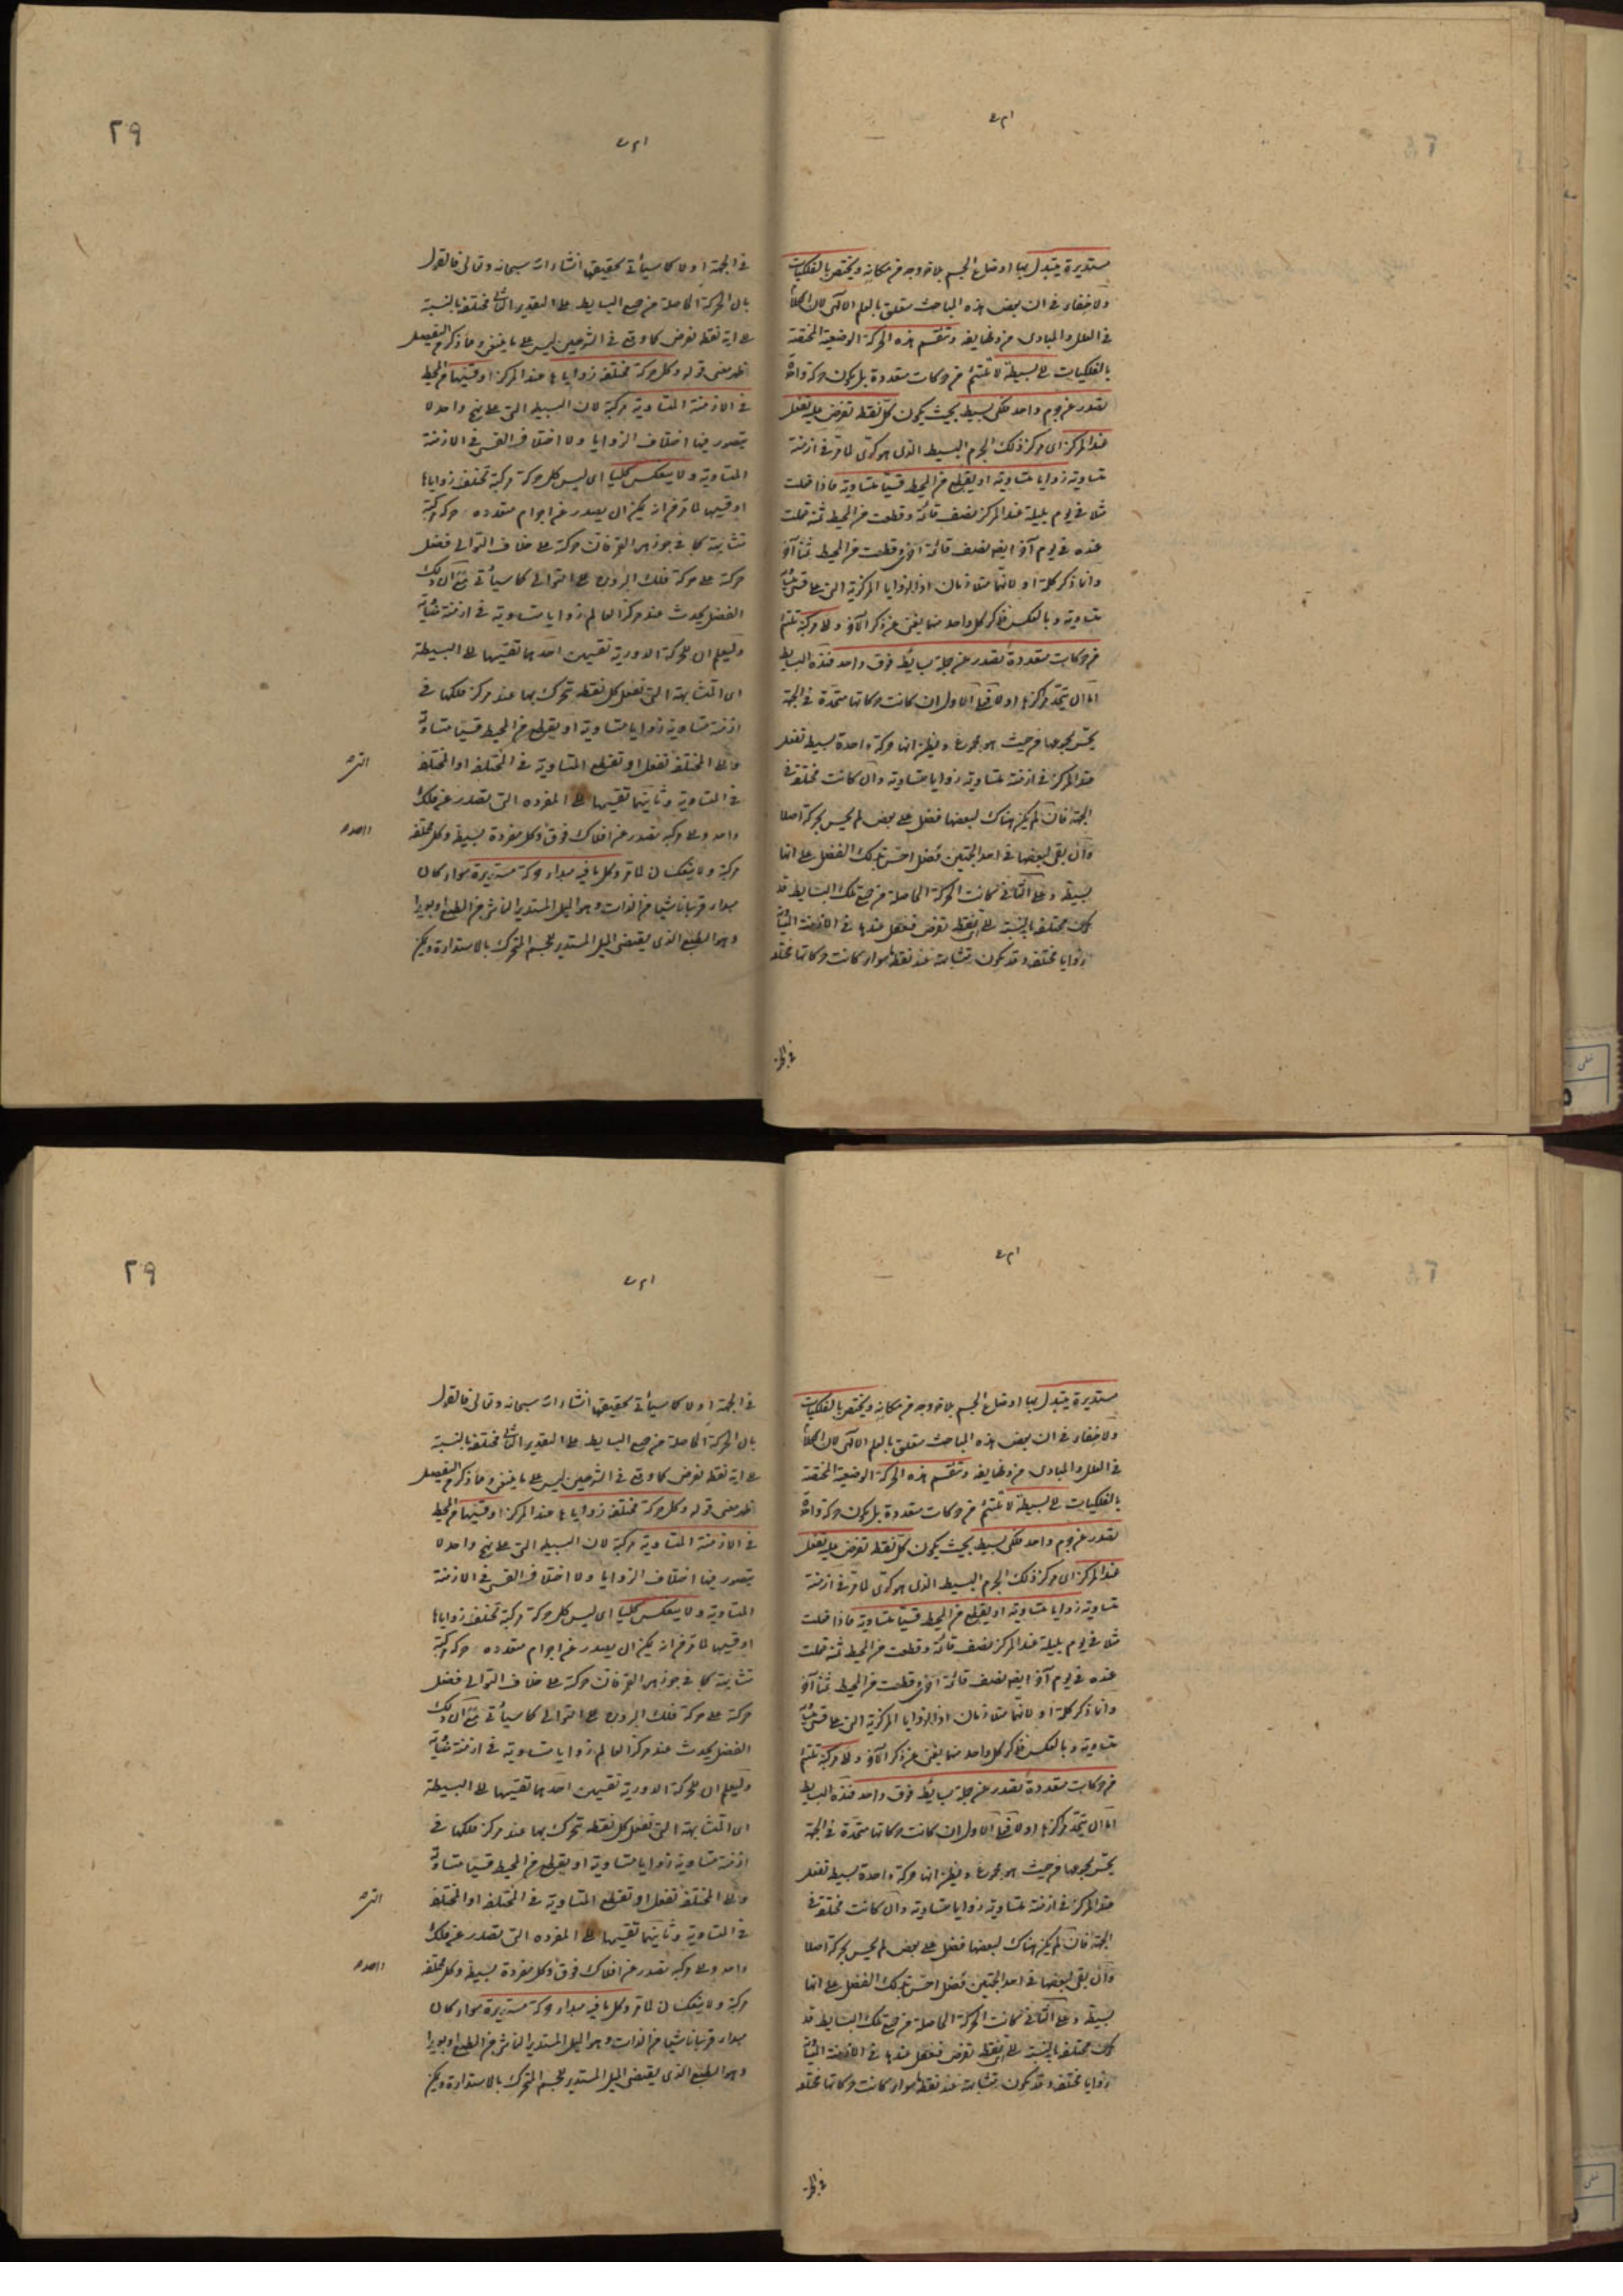 مستديرة يتبدل بها اوضاع الجسم بلا خروجه من مكانه ويختص بالفلكيات
ولا خفاء في ان بعض هذه المباحث متعلق بالعلم الالهى لان
في العلل والمبادى من وظايفه وتنقسم هذه الحركة الوضعية المختصة
بالفلكيات الى بسيطة لا تلتئم من حركات متعددة بل يكون حركة واحدة
تصدر عن جرم واحد فلكى بسيط بحيث يكون كل نقطة تفرض عليه تفعل
عند المركز اى مركز ذلك الجرم البسيط الذى هو كرى لما مر في ازمنة
متساوية زوايا متساوية او يقطع من المحيط قسيا متساوية فاذا فعلت
مثلا في يوم بليلة عند المركز نصف قائمة وقطعت من المحيط ثمنه فعلت
عنده في يوم آخر ايضا نصف قائمة اخرى وقطعت من المحيط ثمنا آخر
وانما ذكر كلمة او لانهما متلازمان اذ الزوايا المركزية التى على قسى
متساوية وبالعكس فذكر كل واحد منها يغنى عن ذكر الآخر والى مركبة تلتئم
من حركات متعددة تصدر عن جملة بسايط فوق واحد فهذه البسايط
اما ان يتحد مراكزها او لا فعلى الاول ان كانت حركاتها متحدة في الجهة
يحس بمجموعها من حيث هو مجموع ويظن انها حركة واحدة بسيطة تفعل
عند المركز في ازمنة متساوية زوايا متساوية وان كانت مختلفة في
الجهة فان لم يكن هناك لبعضها فضل على بعض لم يحس بحركة اصلا
وان بقى لبعضها في احد الجهتين فضل احس بذلك الفضل على انها
بسيطة وعلى الثانى كانت الحركة الحاصلة من جميع تلك البسايط قد
تكون مختلفة بالنسبة الى اى نقطة تفرض فتفعل عندها في الازمنة المتساوية
زوايا مختلفة وقد تكون متشابهة عند نقطة سواء كانت حركاتها مختلفة
في الجهة
٢٩
في الجهة او لا كما سيأتى تحقيقها انشاء الله سبحانه وتعالى فالقول
بان الحركة الحاصلة من جميع البسايط على التقدير الثانى مختلفة بالنسبة
الى اية نقطة تفرض كما وقع في الشرحين ليس على ما ينبغى وما ذكر من التفصيل
ظهر معنى قوله وكل حركة مختلفة زواياها عند المركز او قسيها من المحيط
في الازمنة المتساوية مركبة لان البسيطة التى على نهج واحد لا
يتصور فيها اختلاف الزوايا ولا اختلاف القسى في الازمنة
المتساوية ولا ينعكس كليا اى ليس كل حركة مركبة تختلف زواياها
او قسيها لما مر من انه يمكن ان يصدر عن اجرام متعدده حركة مركبة
متشابهة كما في جوزهر القمر فان حركته على خلاف التوالى فضل
حركته على حركة فلك البروج على التوالى كما سيأتى مع ان ذلك
الفضل يحدث عند مركز العالم زوايا متساوية في ازمنة متساوية
وليعلم ان للحركة الدورية تقسيمين احدهما تقسيمها الى البسيطة
اى المتشابهة التى تفعل كل نقطة تتحرك بها عند مركز فلكها في
ازمنة متساوية زوايا متساوية او يقطع من المحيط قسيا متساوية
والى المختلفة تفعل او تقطع المتساوية في المختلفة او المختلفة
في المتساوية وثانيهما تقسيمها الى المفرده التى تصدر عن فلك
واحد والى مركبة تصدر عن افلاك فوق وكل مفردة بسيطة وكل مختلفة
مركبة ولا ينعكسان لما مر وكل ما فيه مبدأ حركة مستديرة سواء كان
مبدأ قريبا ناشيا من الذات وهو الميل المستدير الناشى من الطبع او بعيدا
وهو الطبع الذى يقتضى الميل المستدير للجسم المتحرك بالاستدارة ويمكن
مستديرة يتبدل بها اوضاع الجسم بلا خروجه من مكانه ويختص بالفلكيات
ولا خفاء في ان بعض هذه المباحث متعلق بالعلم الالهى لان
في العلل والمبادى من وظايفه وتنقسم هذه الحركة الوضعية المختصة
بالفلكيات الى بسيطة لا تلتئم من حركات متعددة بل يكون حركة واحدة
تصدر عن جرم واحد فلكى بسيط بحيث يكون كل نقطة تفرض عليه تفعل
عند المركز اى مركز ذلك الجرم البسيط الذى هو كرى لما مر في ازمنة
متساوية زوايا متساوية او يقطع من المحيط قسيا متساوية فاذا فعلت
مثلا في يوم بليلة عند المركز نصف قائمة وقطعت من المحيط ثمنه فعلت
عنده في يوم آخر ايضا نصف قائمة اخرى وقطعت من المحيط ثمنا آخر
وانما ذكر كلمة او لانهما متلازمان اذ الزوايا المركزية التى على قسى
متساوية وبالعكس فذكر كل واحد منها يغنى عن ذكر الآخر والى مركبة تلتئم
من حركات متعددة تصدر عن جملة بسايط فوق واحد فهذه البسايط
اما ان يتحد مراكزها او لا فعلى الاول ان كانت حركاتها متحدة في الجهة
يحس بمجموعها من حيث هو مجموع ويظن انها حركة واحدة بسيطة تفعل
عند المركز في ازمنة متساوية زوايا متساوية وان كانت مختلفة في
الجهة فان لم يكن هناك لبعضها فضل على بعض لم يحس بحركة اصلا
وان بقى لبعضها في احد الجهتين فضل احس بذلك الفضل على انها
بسيطة وعلى الثانى كانت الحركة الحاصلة من جميع تلك البسايط قد
تكون مختلفة بالنسبة الى اى نقطة تفرض فتفعل عندها في الازمنة المتساوية
زوايا مختلفة وقد تكون متشابهة عند نقطة سواء كانت حركاتها مختلفة
في الجهة
٢٩
في الجهة او لا كما سيأتى تحقيقها انشاء الله سبحانه وتعالى فالقول
بان الحركة الحاصلة من جميع البسايط على التقدير الثانى مختلفة بالنسبة
الى اية نقطة تفرض كما وقع في الشرحين ليس على ما ينبغى وما ذكر من التفصيل
ظهر معنى قوله وكل حركة مختلفة زواياها عند المركز او قسيها من المحيط
في الازمنة المتساوية مركبة لان البسيطة التى على نهج واحد لا
يتصور فيها اختلاف الزوايا ولا اختلاف القسى في الازمنة
المتساوية ولا ينعكس كليا اى ليس كل حركة مركبة تختلف زواياها
او قسيها لما مر من انه يمكن ان يصدر عن اجرام متعدده حركة مركبة
متشابهة كما في جوزهر القمر فان حركته على خلاف التوالى فضل
حركته على حركة فلك البروج على التوالى كما سيأتى مع ان ذلك
الفضل يحدث عند مركز العالم زوايا متساوية في ازمنة متساوية
وليعلم ان للحركة الدورية تقسيمين احدهما تقسيمها الى البسيطة
اى المتشابهة التى تفعل كل نقطة تتحرك بها عند مركز فلكها في
ازمنة متساوية زوايا متساوية او يقطع من المحيط قسيا متساوية
والى المختلفة تفعل او تقطع المتساوية في المختلفة او المختلفة
في المتساوية وثانيهما تقسيمها الى المفرده التى تصدر عن فلك
واحد والى مركبة تصدر عن افلاك فوق وكل مفردة بسيطة وكل مختلفة
مركبة ولا ينعكسان لما مر وكل ما فيه مبدأ حركة مستديرة سواء كان
مبدأ قريبا ناشيا من الذات وهو الميل المستدير الناشى من الطبع او بعيدا
وهو الطبع الذى يقتضى الميل المستدير للجسم المتحرك بالاستدارة ويمكن